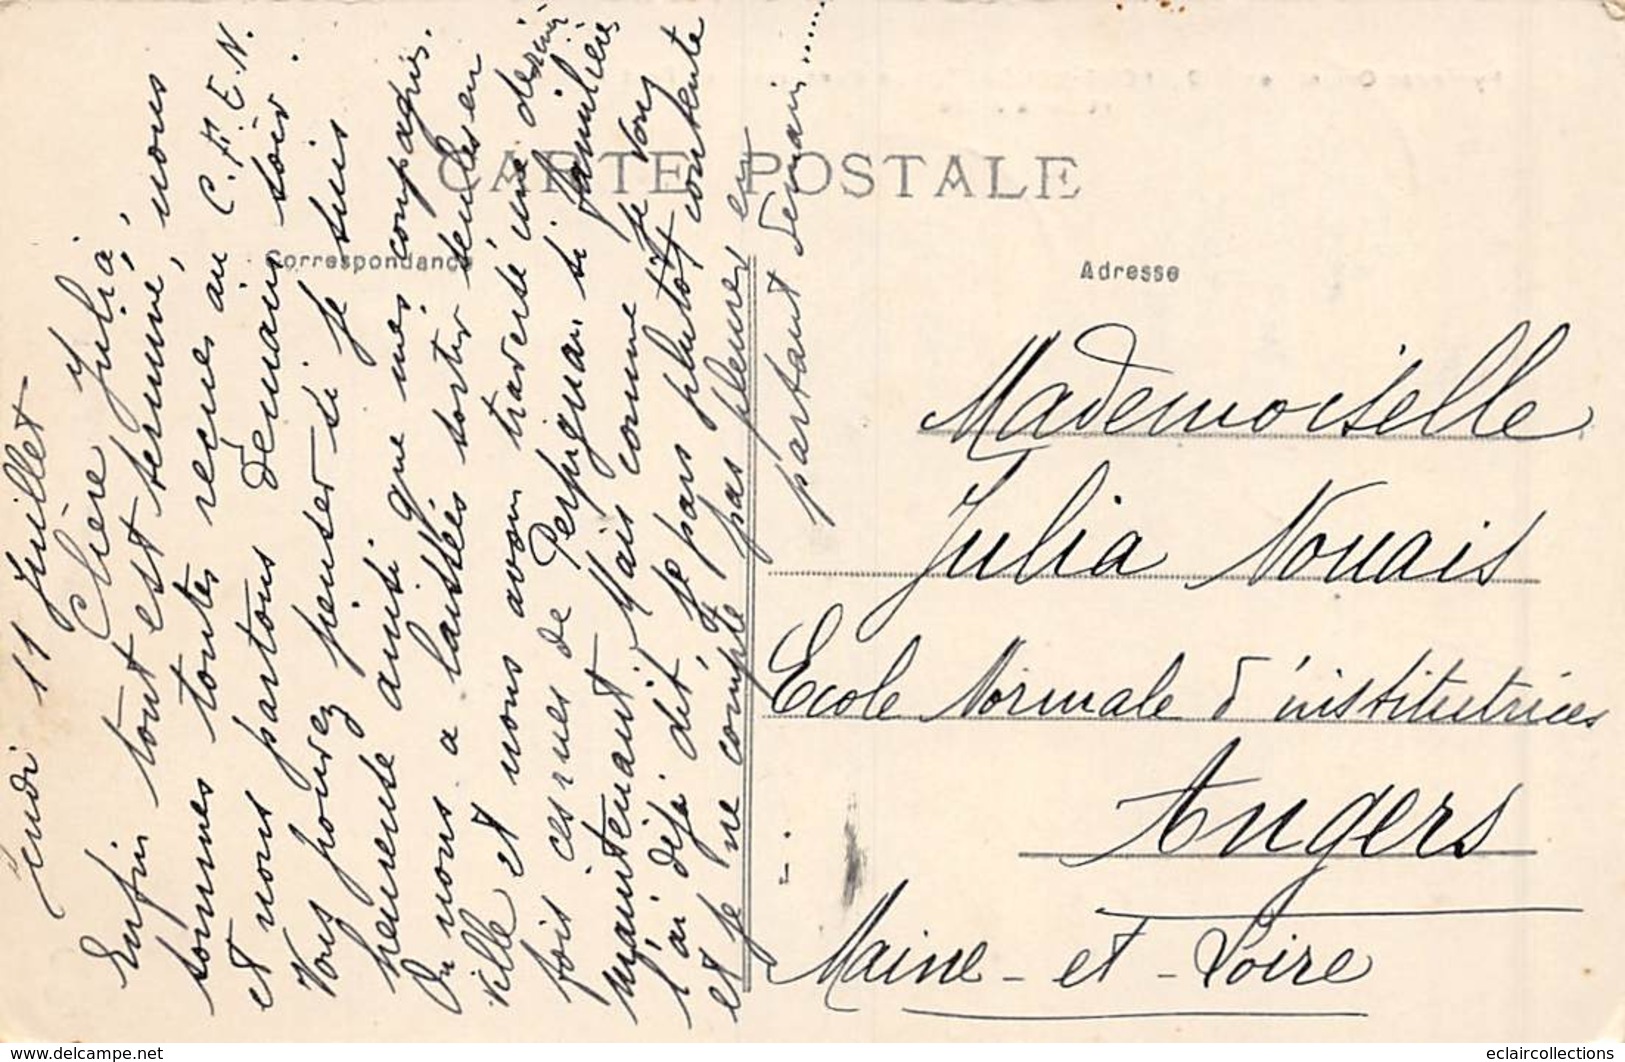 CARTE POSTALE
Correspondance
Adresse
Lundi 11 Juillet
Chère Julia,
Enfin tout est terminé, nous
sommes toutes reçues au C.A.E.N.
et nous partons demain soir.
Vous pouvez penser si je suis
heureuse ainsi que mes compagnes.
On nous a laissées sortir seules en
ville et nous avons traversé une dernière
fois ces rues de Perpignan si familières
maintenant. Mais comme je vous
l'ai déjà dit, je pars plutôt contente
et je ne compte pas pleurer en
partant demain.....
Mademoiselle
Julia Nouais
Ecole Normale d'institutrices
Angers
Maine-et-Loire
www.delcampe.net
eclaircollections